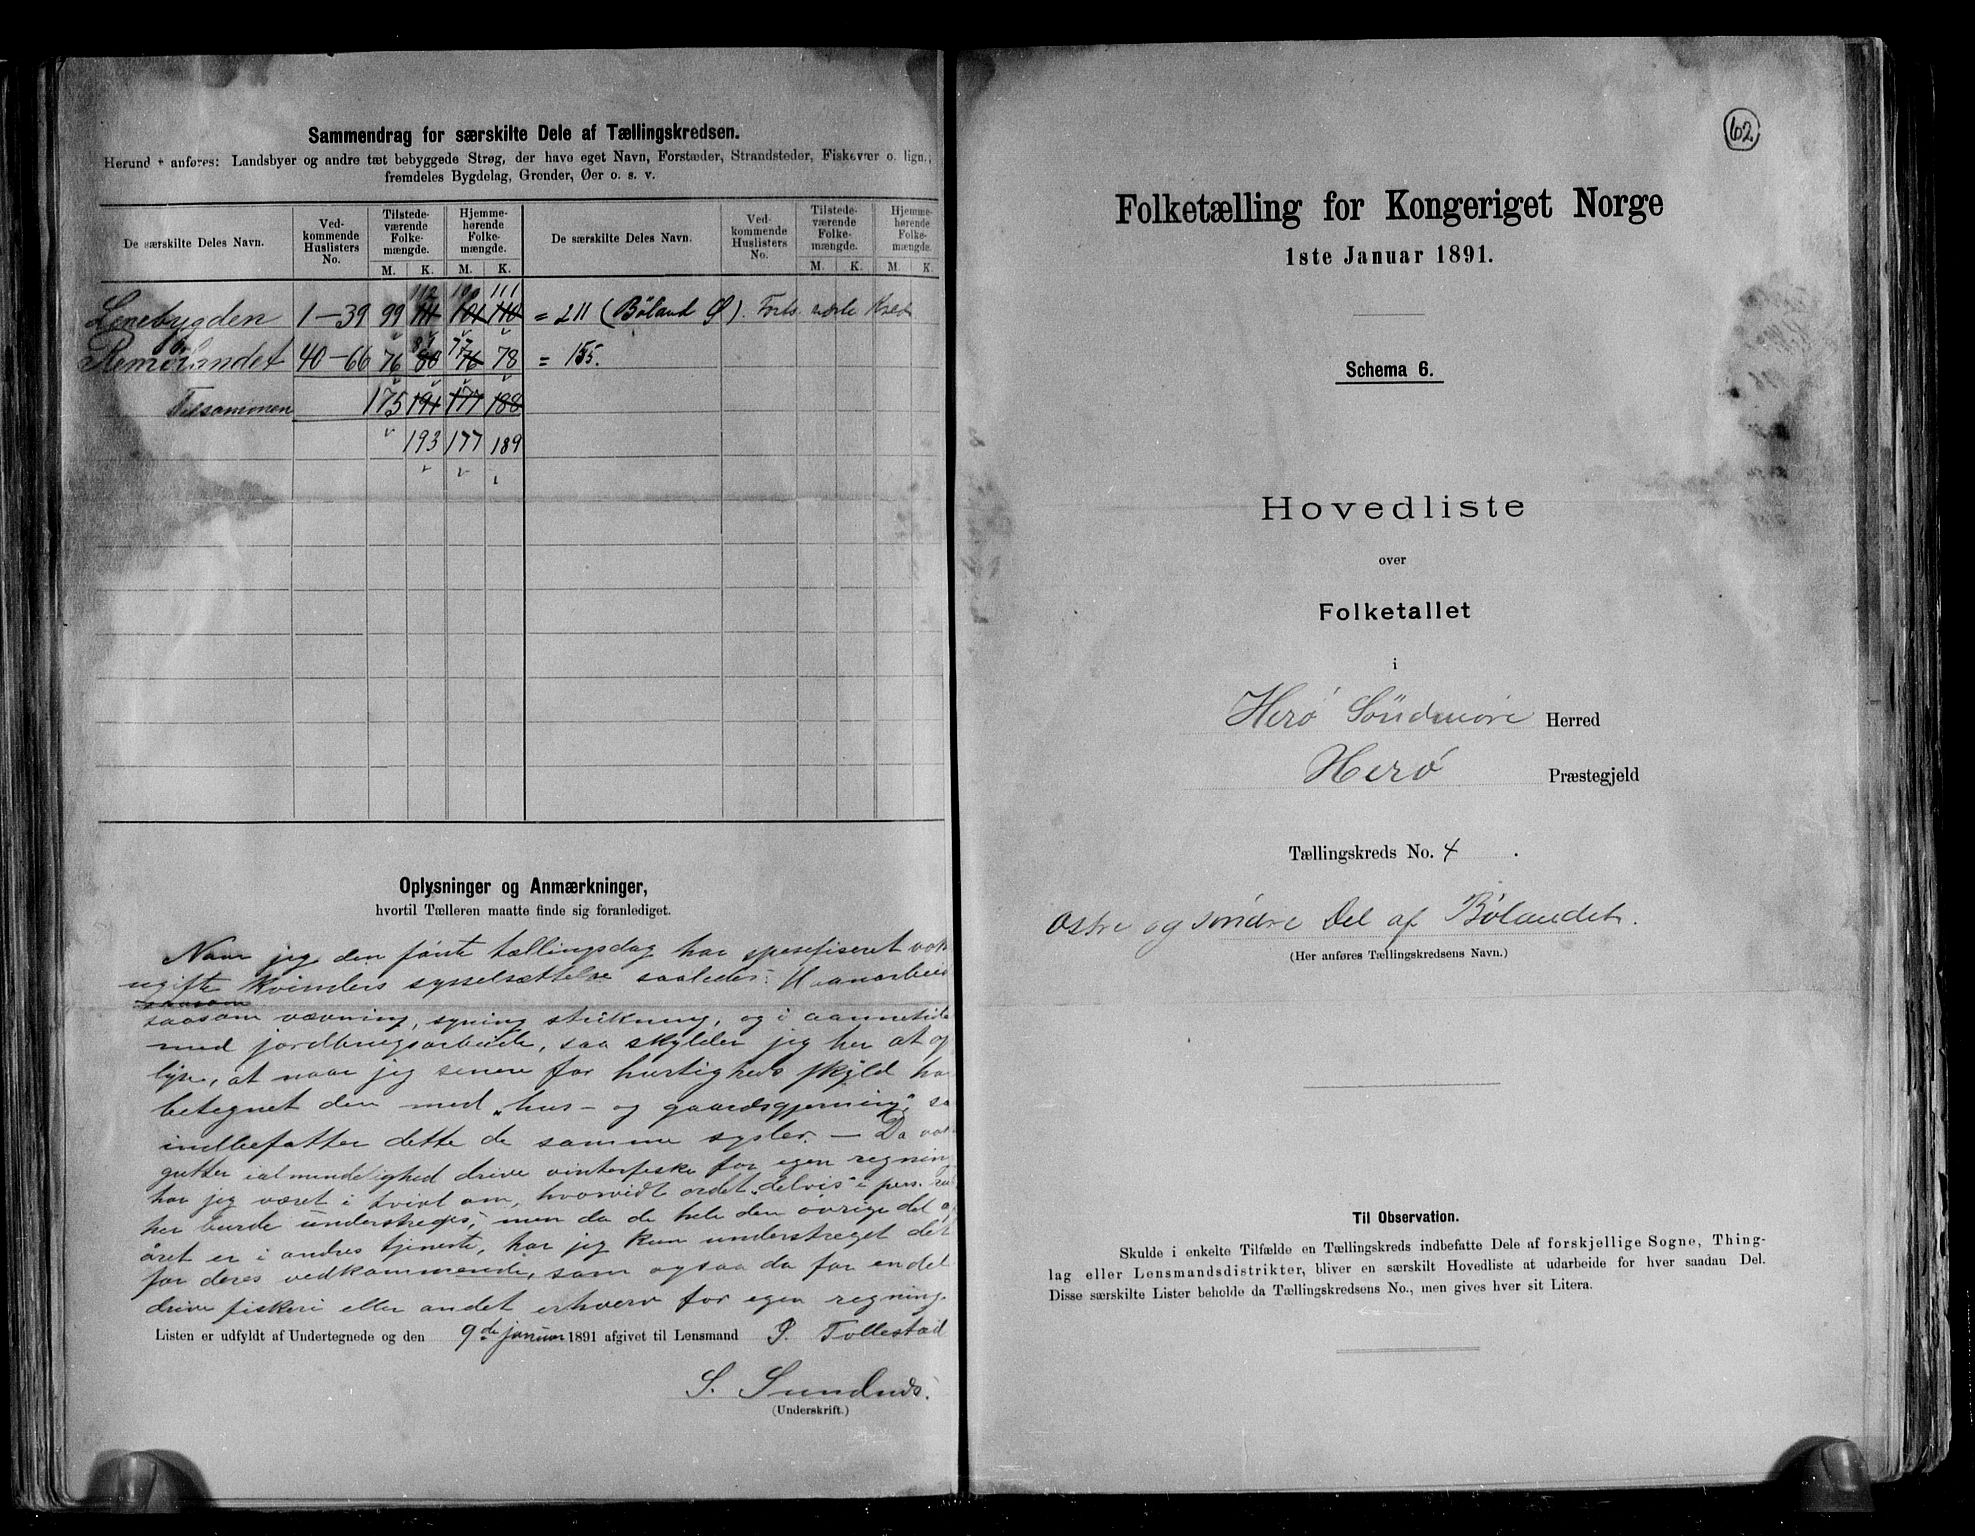 Sammendrag for særskilte Dele af Tællingskredsen.
Herund + anføres: Landsbyer og andre tæt bebyggede Strøg, der have eget Navn, Forstæder, Strandsteder, Fiskevær o. lign.,
fremdeles Bygdelag, Grender, Øer o. s. v.
De særskilte Deles Navn.
Ved-
kommende
Huslisters
No.
Tilstede-
værende
Folke-
mængde.
Hjemme-
hørende
Folke-
mængde.
M. K. M. K.
De særskilte Deles Navn.
Ved-
kommende
Huslisters
No.
Tilstede-
værende
Folke-
mængde.
Hjemme-
hørende
Folke-
mængde.
M. K. M. K.
112 100 111
1–39 99 111 101 110 = 211 (Bøland Ø). Forts. næste Kreds
81 77
40–66 76 80 76 78 = 155.
Tilsammen 175 191 177 188
193 177 189
Oplysninger og Anmærkninger,
hvortil Tælleren maatte finde sig foranlediget.
Naar jeg den første tællingsdag har spesefiseret
ugifte kvinders sysselsættelse saaledes: Haanarbeid
saasom
saasom vævning, syning, strikning, og i aannetide
med jordbrugsarbeide, saa skylder jeg her at op
lyse, at naar jeg senere for hurtigheds skyld ha
betegnet den med „hus- og gaardsgjerning", sa
indbefatter dette de samme sysler. — Da
gutter i almindelighed drive vinterfiske for egen regning
har jeg været i tvivl om, hvorvidt ordet „delvis" i
her burde understreges; men da de hele den øvrige del a
året er i andres tjeneste, har jeg kun understreget det
for deres vedkommende, som ogsaa da for en del
drive fiskeri eller andet erhverv for egen regning.
Listen er udfyldt af Undertegnede og den 9de januar 1891 afgivet til Lensmand P. Tollestad
S.
(Underskrift.)
62
Folketælling for Kongeriget Norge
1ste Januar 1891.
Schema 6.
Hovedliste
over
Folketallet
i
Herø Søndmøre Herred
Herø Præstegjeld
Tællingskreds No. 4.
Østre og søndre Del af Bølandet.
(Her anføres Tællingskredsens Navn.)
Til Observation.
Skulde i enkelte Tilfælde en Tællingskreds indbefatte Dele af forskjellige Sogne, Thing-
lag eller Lensmandsdistrikter, bliver en særskilt Hovedliste at udarbeide for hver saadan Del.
Disse særskilte Lister beholde da Tællingskredsens No., men gives hver sit Litera.